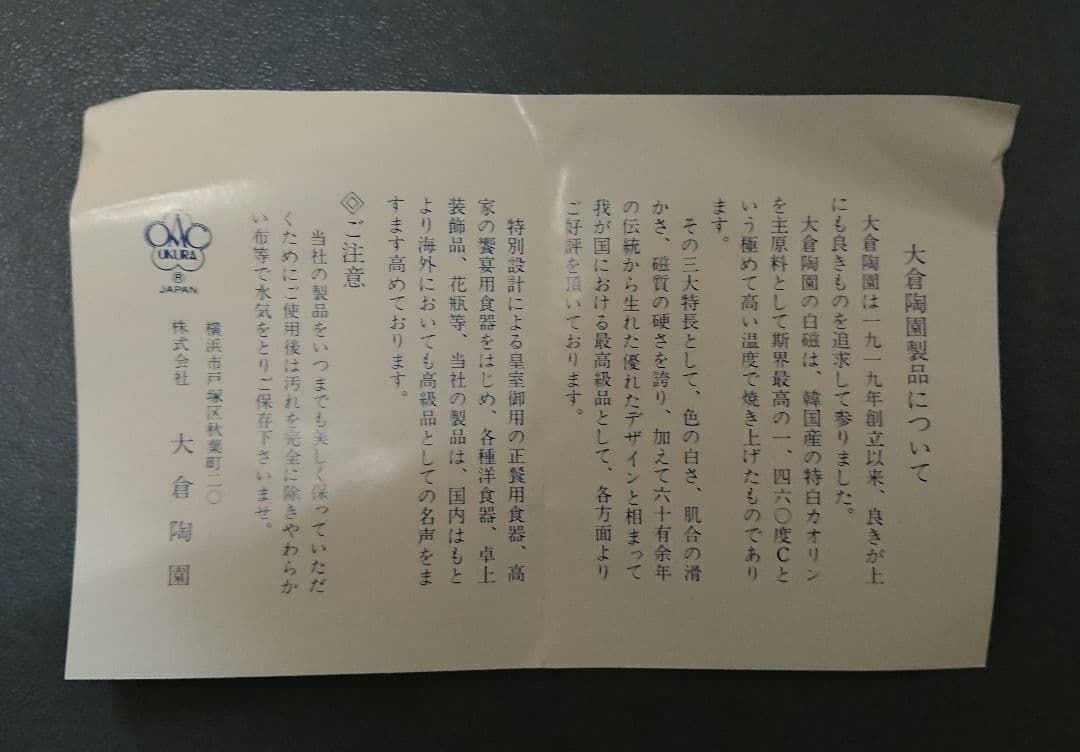 大倉陶園製品について
大倉陶園は一九一九年創立以来、良きが上
にも良きものを追求して参りました。
大倉陶園の白磁は、韓国産の特白カオリン
を主原料として斯界最高の一、四六〇度Cと
いう極めて高い温度で焼き上げたものであり
ます。
その三大特長として、色の白さ、肌合の滑
かさ、磁質の硬さを誇り、加えて六十有余年
の伝統から生れた優れたデザインと相まって
我が国における最高級品として、各方面より
ご好評を頂いております。
特別設計による皇室御用の正餐用食器、高
家の饗宴用食器をはじめ、各種洋食器、卓上
装飾品、花瓶等、当社の製品は、国内はもと
より海外においても高級品としての名声をま
すます高めております。
◈ご注意
当社の製品をいつまでも美しく保っていただ
くためにご使用後は汚れを完全に除きやわらか
い布等で水気をとりご保存下さいませ。
横浜市戸塚区秋葉町二〇
株式会社 大倉陶園
OAC
OKURA
®
JAPAN